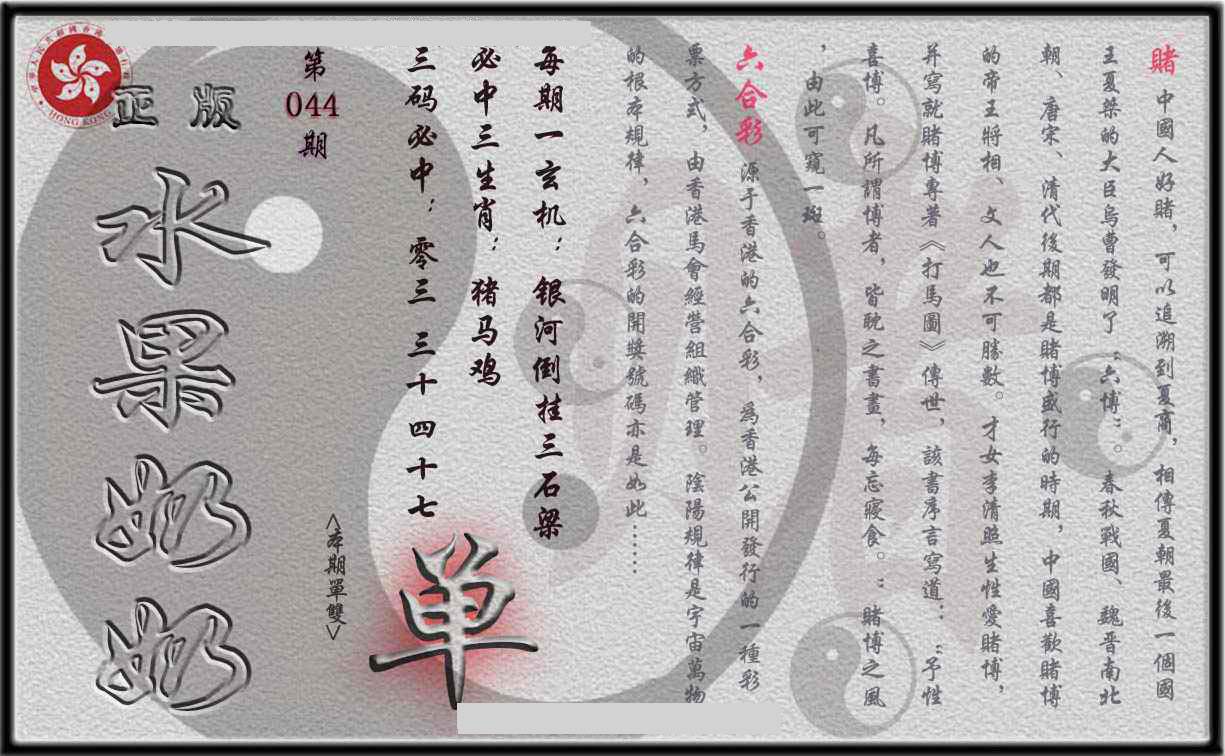 賭 中國人好賭，可以追溯到夏商，相傳夏朝最後一個國
王夏桀的大臣烏曹發明了“六博”。春秋戰國、魏晋南北
朝、唐宋、清代後期都是賭博盛行的時期，中國喜歡賭博
的帝王將相、文人也不可勝數。才女李清照生性愛賭博，
并寫就賭博專著《打馬圖》傳世，該書序言寫道：“予性
喜博。凡所謂博者，皆耽之書畫，每忘寢食。”賭博之風
，由此可窺一斑。
六合彩 源于香港的六合彩，為香港公開發行的一種彩
票方式，由香港馬會經營組織管理。陰陽規律是宇宙萬物
的根本規律，六合彩的開獎號碼亦是如此……
每期一玄机：银河倒挂三石梁
必中三生肖：猪马鸡
三码必中：零三 三十 四十七
单
<本期單雙>
第
044
期
正版
水果奶奶
HONG KONG